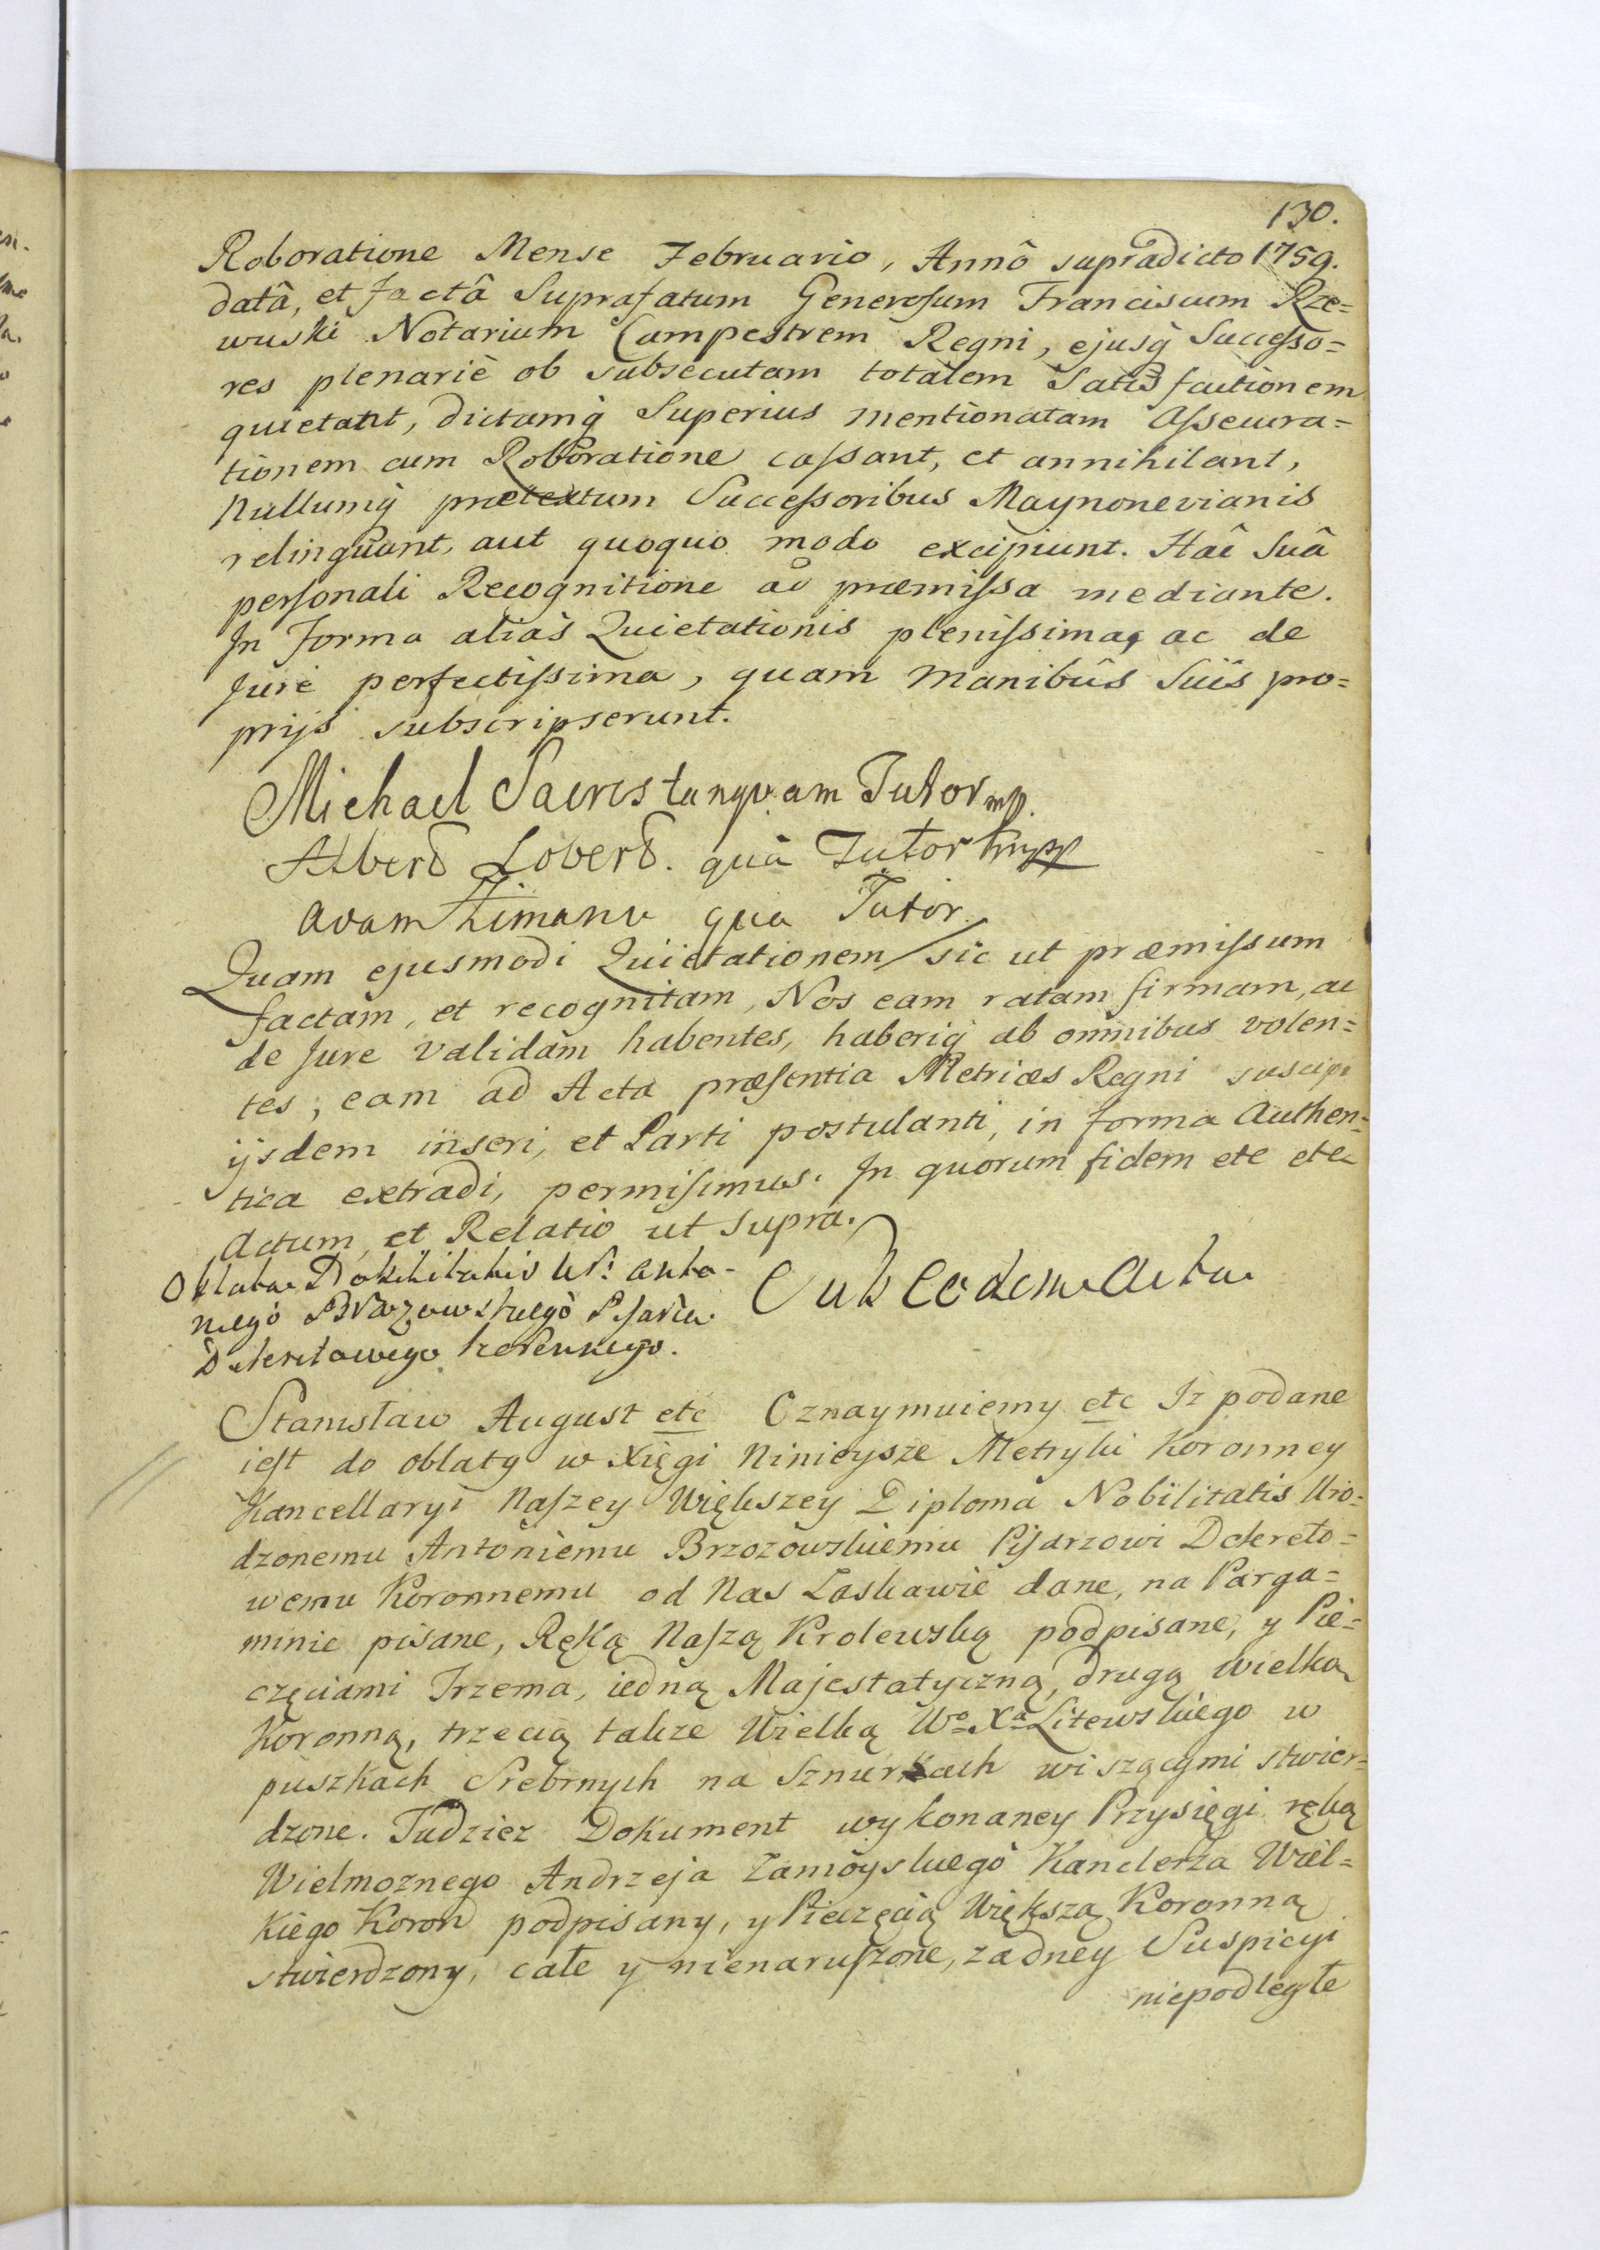 130.
Roboratione Mense Februario, Annô supradicto 1759.
datâ, et factâ Suprafatum Generosum Franciscum Rze=
wuski Notarium Campestrem Regni, ejusq̀ Successo=
res plenariè ob subsecutam totalem Satisfactionem
quietant, dictamq̀ Superius mentionatam Assecura=
tionem cum Roboratione cassant, et annihilant,
Nullumq̀ prætextum Successoribus Maynonevianis
relinquant, aut quoquo modo excipiunt. Hac Suâ
personali Recognitione ad præmissa mediante.
In Forma alias Quietationis plenissima, ac de
Jure perfectissima, quam Manibus Suis pro=
prijs subscripserunt.
Michael Sacris tanquam Tutor mp.
Albert Lobert. qua Tutor mpp
Adam qua Tutor.
Quam ejusmodi Quietationem sic ut præmissum
factam, et recognitam, Nos eam ratam firmam, ac
de Jure validam habentes, haberiq̀ ab omnibus volen=
tes, eam ad Acta præsentia Metrices Regni suscipi
ijsdem inseri, et Parti postulanti, in forma Authen=
tica extradi, permisimus. In quorum fidem etc etc
Actum, et Relatio ut Supra.
Oblata Dnobilitatis Ur: Anto-
niego Brzozowskiego Pisarza
Dekretowego Koronnego.
Sub eodem Actu
Stanisław August etc Oznaymuiemy etc Iz podane
iest do oblaty w Xięgi Ninieysze Metryki Koronney
Kancellaryi Naszey Większey Diploma Nobilitatis Uro=
dzonemu Antoniemu Brzozowskiemu Pisarzowi Dekreto=
wemu Koronnemu od Nas Łaskawie dane, na Parga=
minie pisane, Ręką Naszą Krolewską podpisane, y Pie=
częciami Trzema, iedną Majestatyczną, drugą wielką
Koronną, trzecią takze Wielką Wo Xa Litewskiego w
puszkach Srebrnych na Sznurkach wiszącymi stwier=
dzone. Tudziez Dokument wykonaney Przysięgi ręką
Wielmoznego Andrzeja Zamoyskiego Kanclerza Wiel=
kiego Koron podpisany, y Pieczęcią Większą Koronną
stwierdzony, całe y nienaruszone, zadney Suspicyi
niepodległe